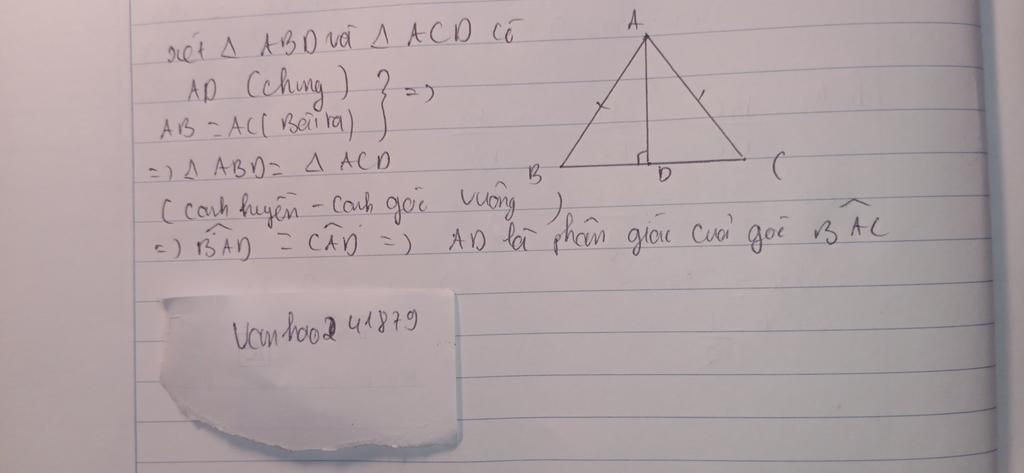 xét Δ ABD và Δ ACD có
AD (chung)
AB = AC (Bài ra) } =>
=> Δ ABD = Δ ACD
(cạnh huyền - cạnh góc vuông)
=> B\hat{A}D = C\hat{A}D => AD là phân giác của góc B\hat{A}C
A
B
D
C
Vanhao241879